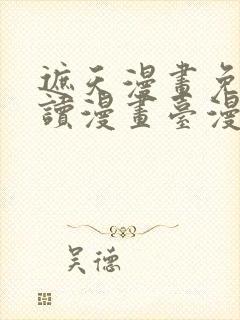 遮天漫畫免
讀漫畫臺漫
吴德